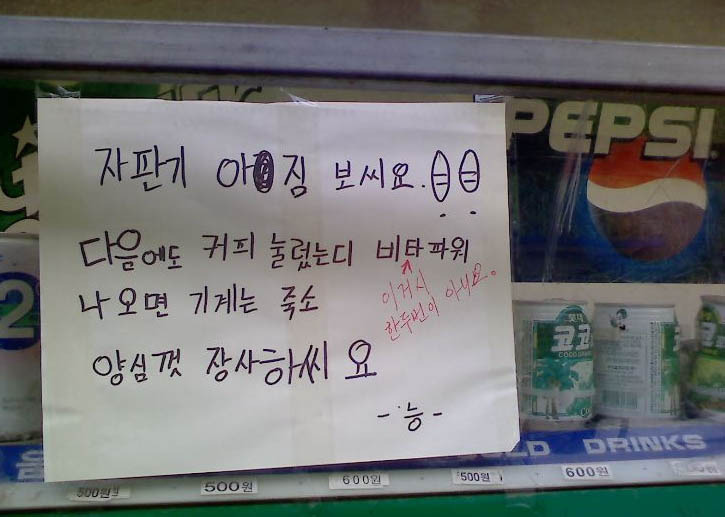 자판기 아짐 보씨요.
다음에도 커피 눌렀는디 비타파워
나오면 기계는 죽소
이거시
한두번이 아니요.
양심껏 장사하씨요
- 능 -
PEPSI
2
코코
COCO
COLD DRINKS
500원
500원
600원
500원
600원